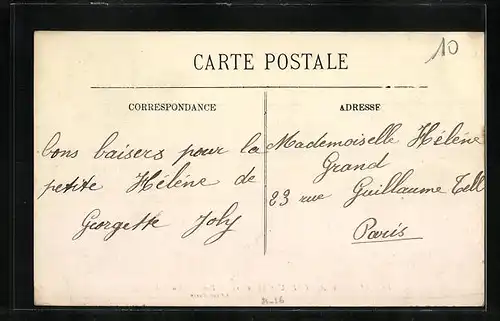 10
CARTE POSTALE
CORRESPONDANCE
bons baisers pour la
petite Hélène de
Georgette Joly
ADRESSE
Mademoiselle Hélène
Grand
23 rue Guillaume Tell
Paris